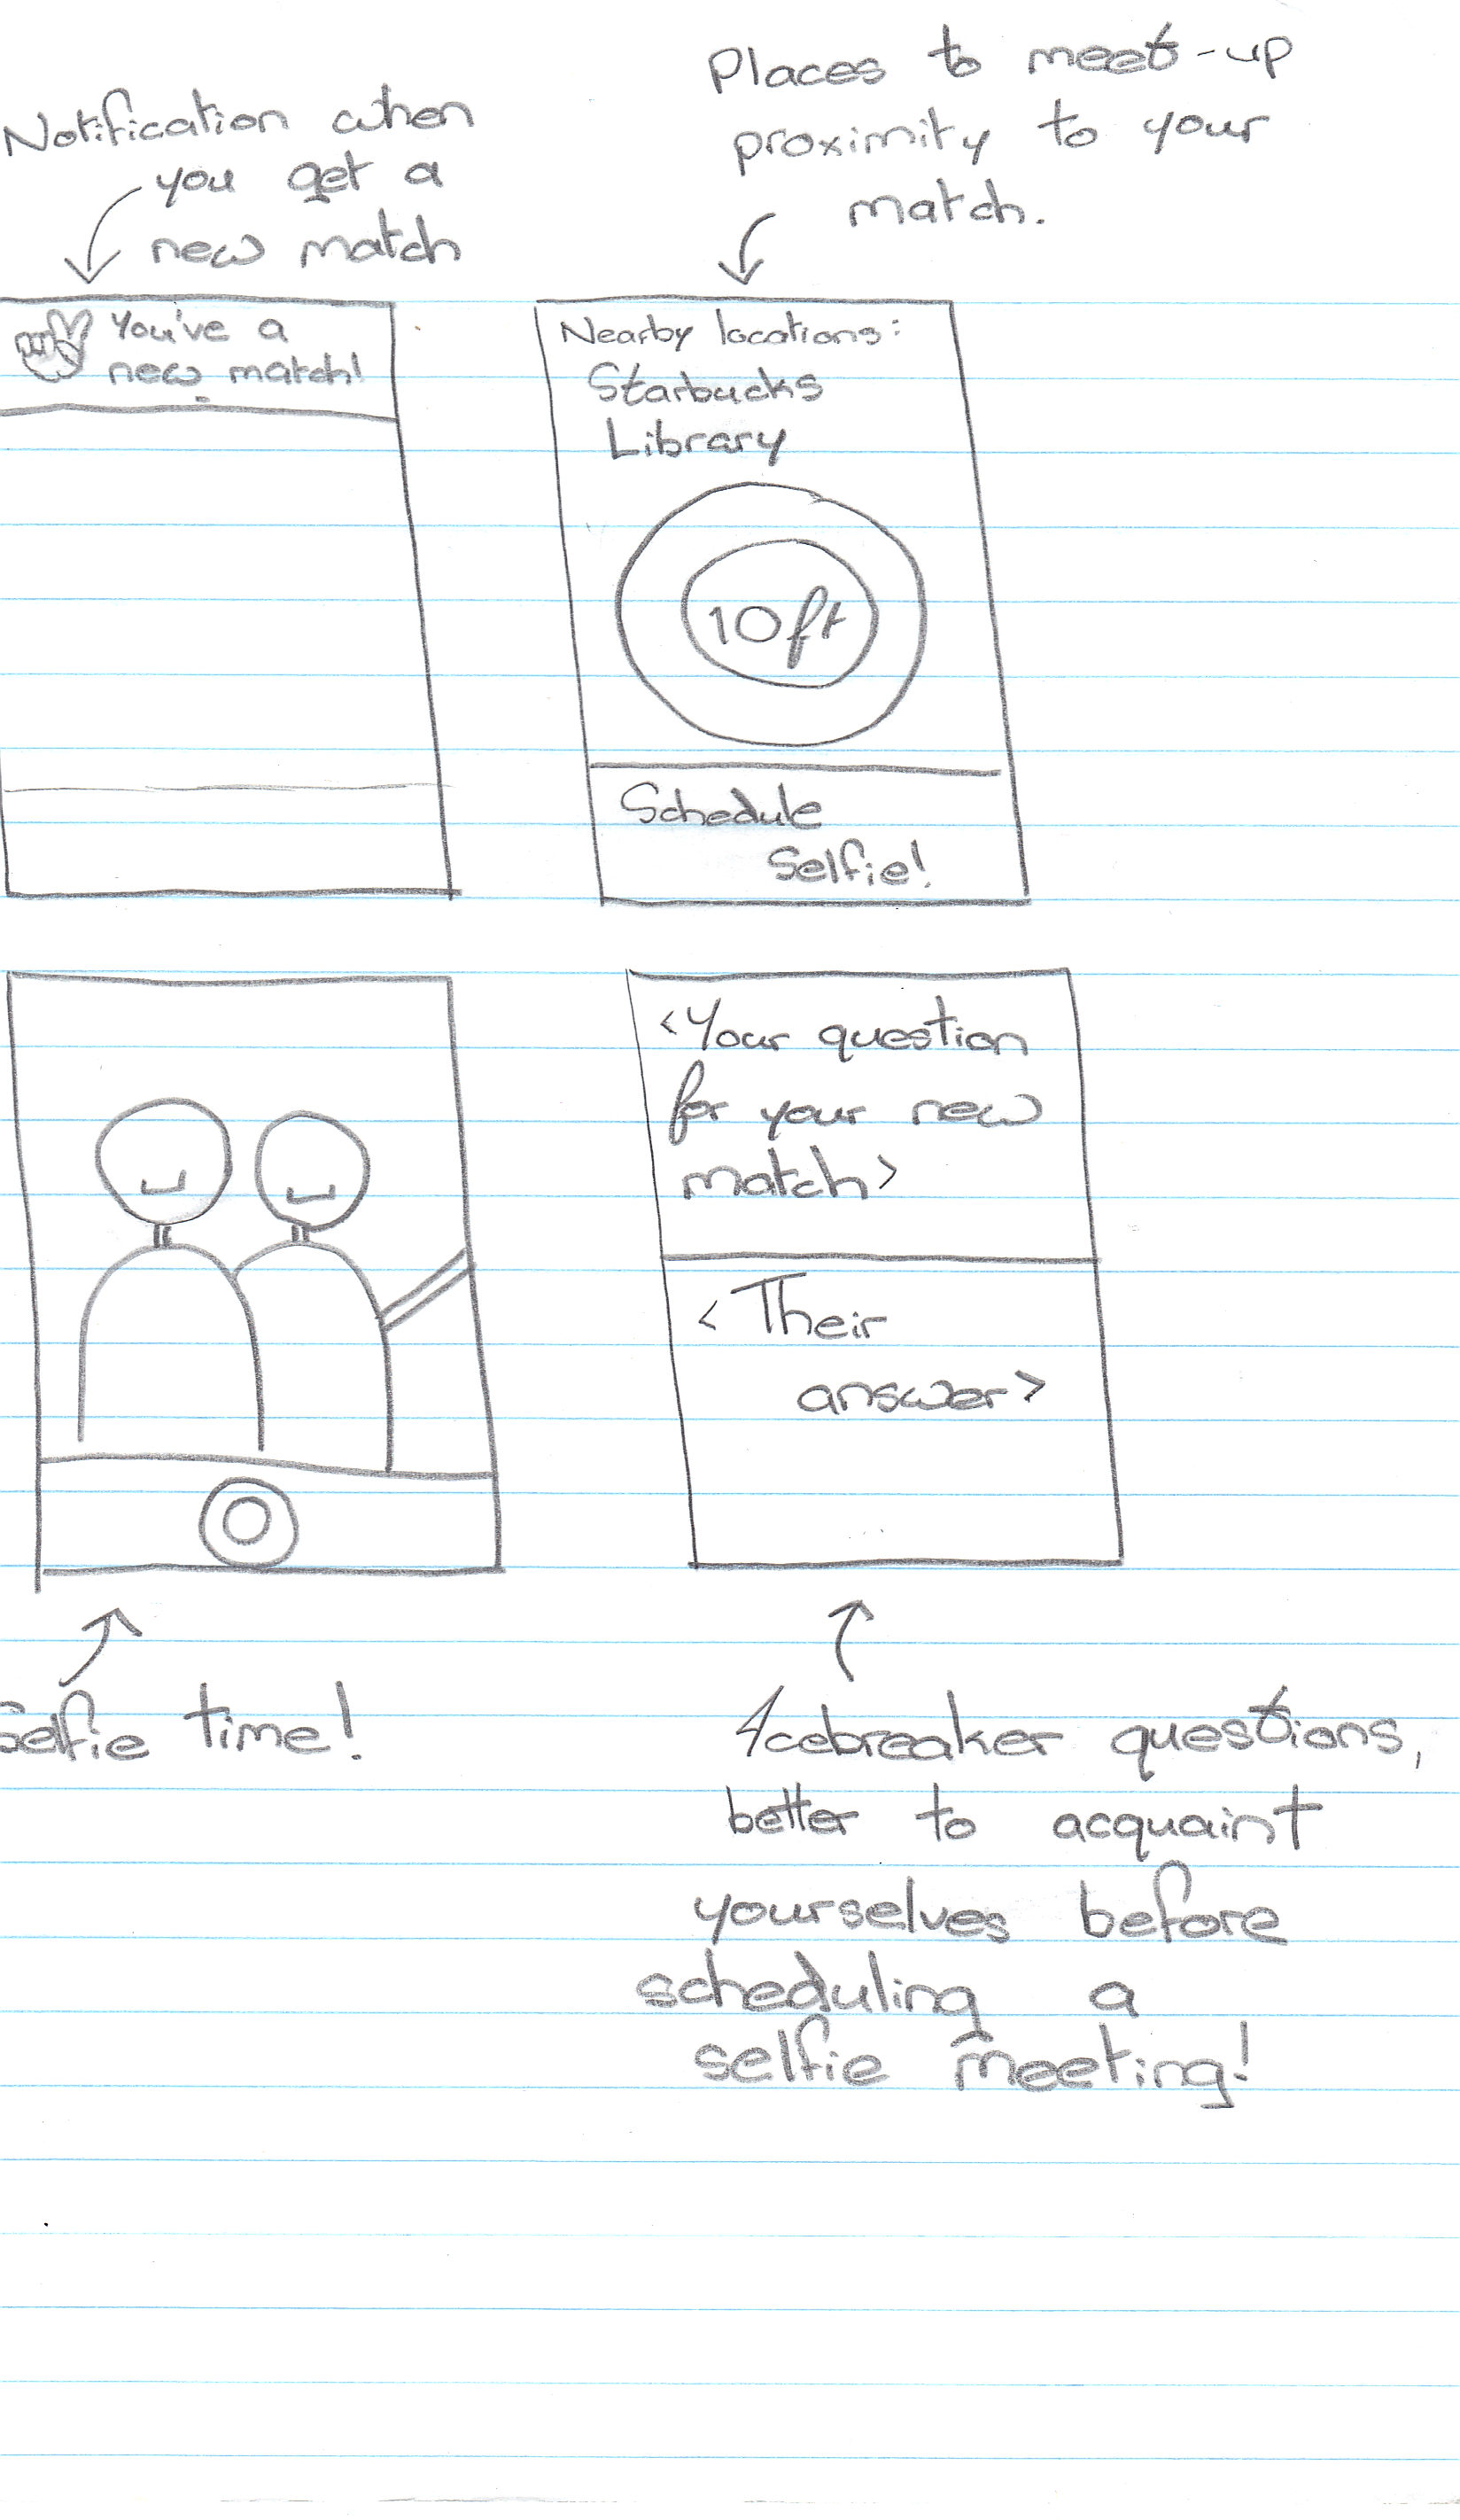 Notification when
you get a
new match
Places to meet-up
proximity to your
match.
You've a
new match!
Nearby locations:
Starbucks
Library
10ft
Schedule
Selfie!
<Your question
for your new
match>
<Their
answer>
Selfie time!
Icebreaker questions,
better to acquaint
yourselves before
scheduling a
selfie meeting!